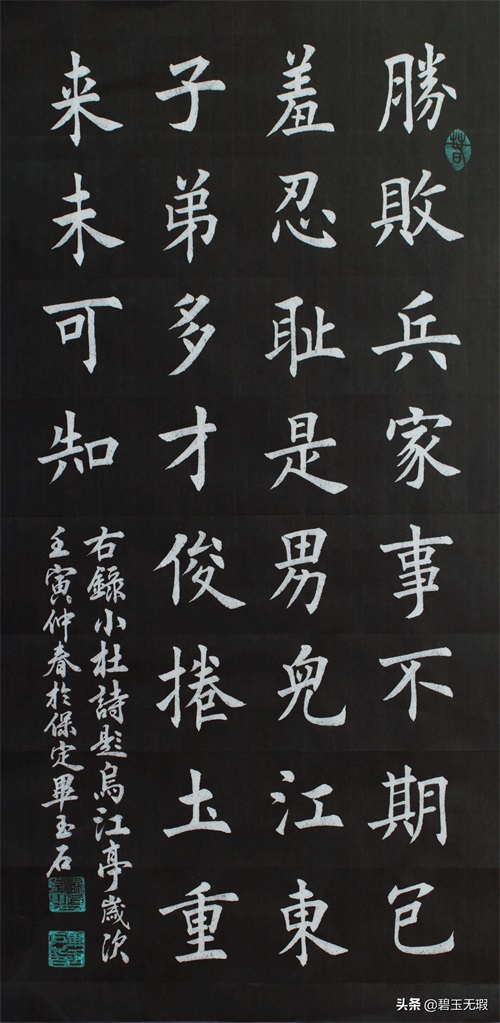 勝敗兵家事不期包
羞忍耻是男兒江東
子弟多才俊捲土重
来未可知
右錄小杜詩題烏江亭歲次
壬寅仲春於保定畢玉石
头条 @碧玉无瑕